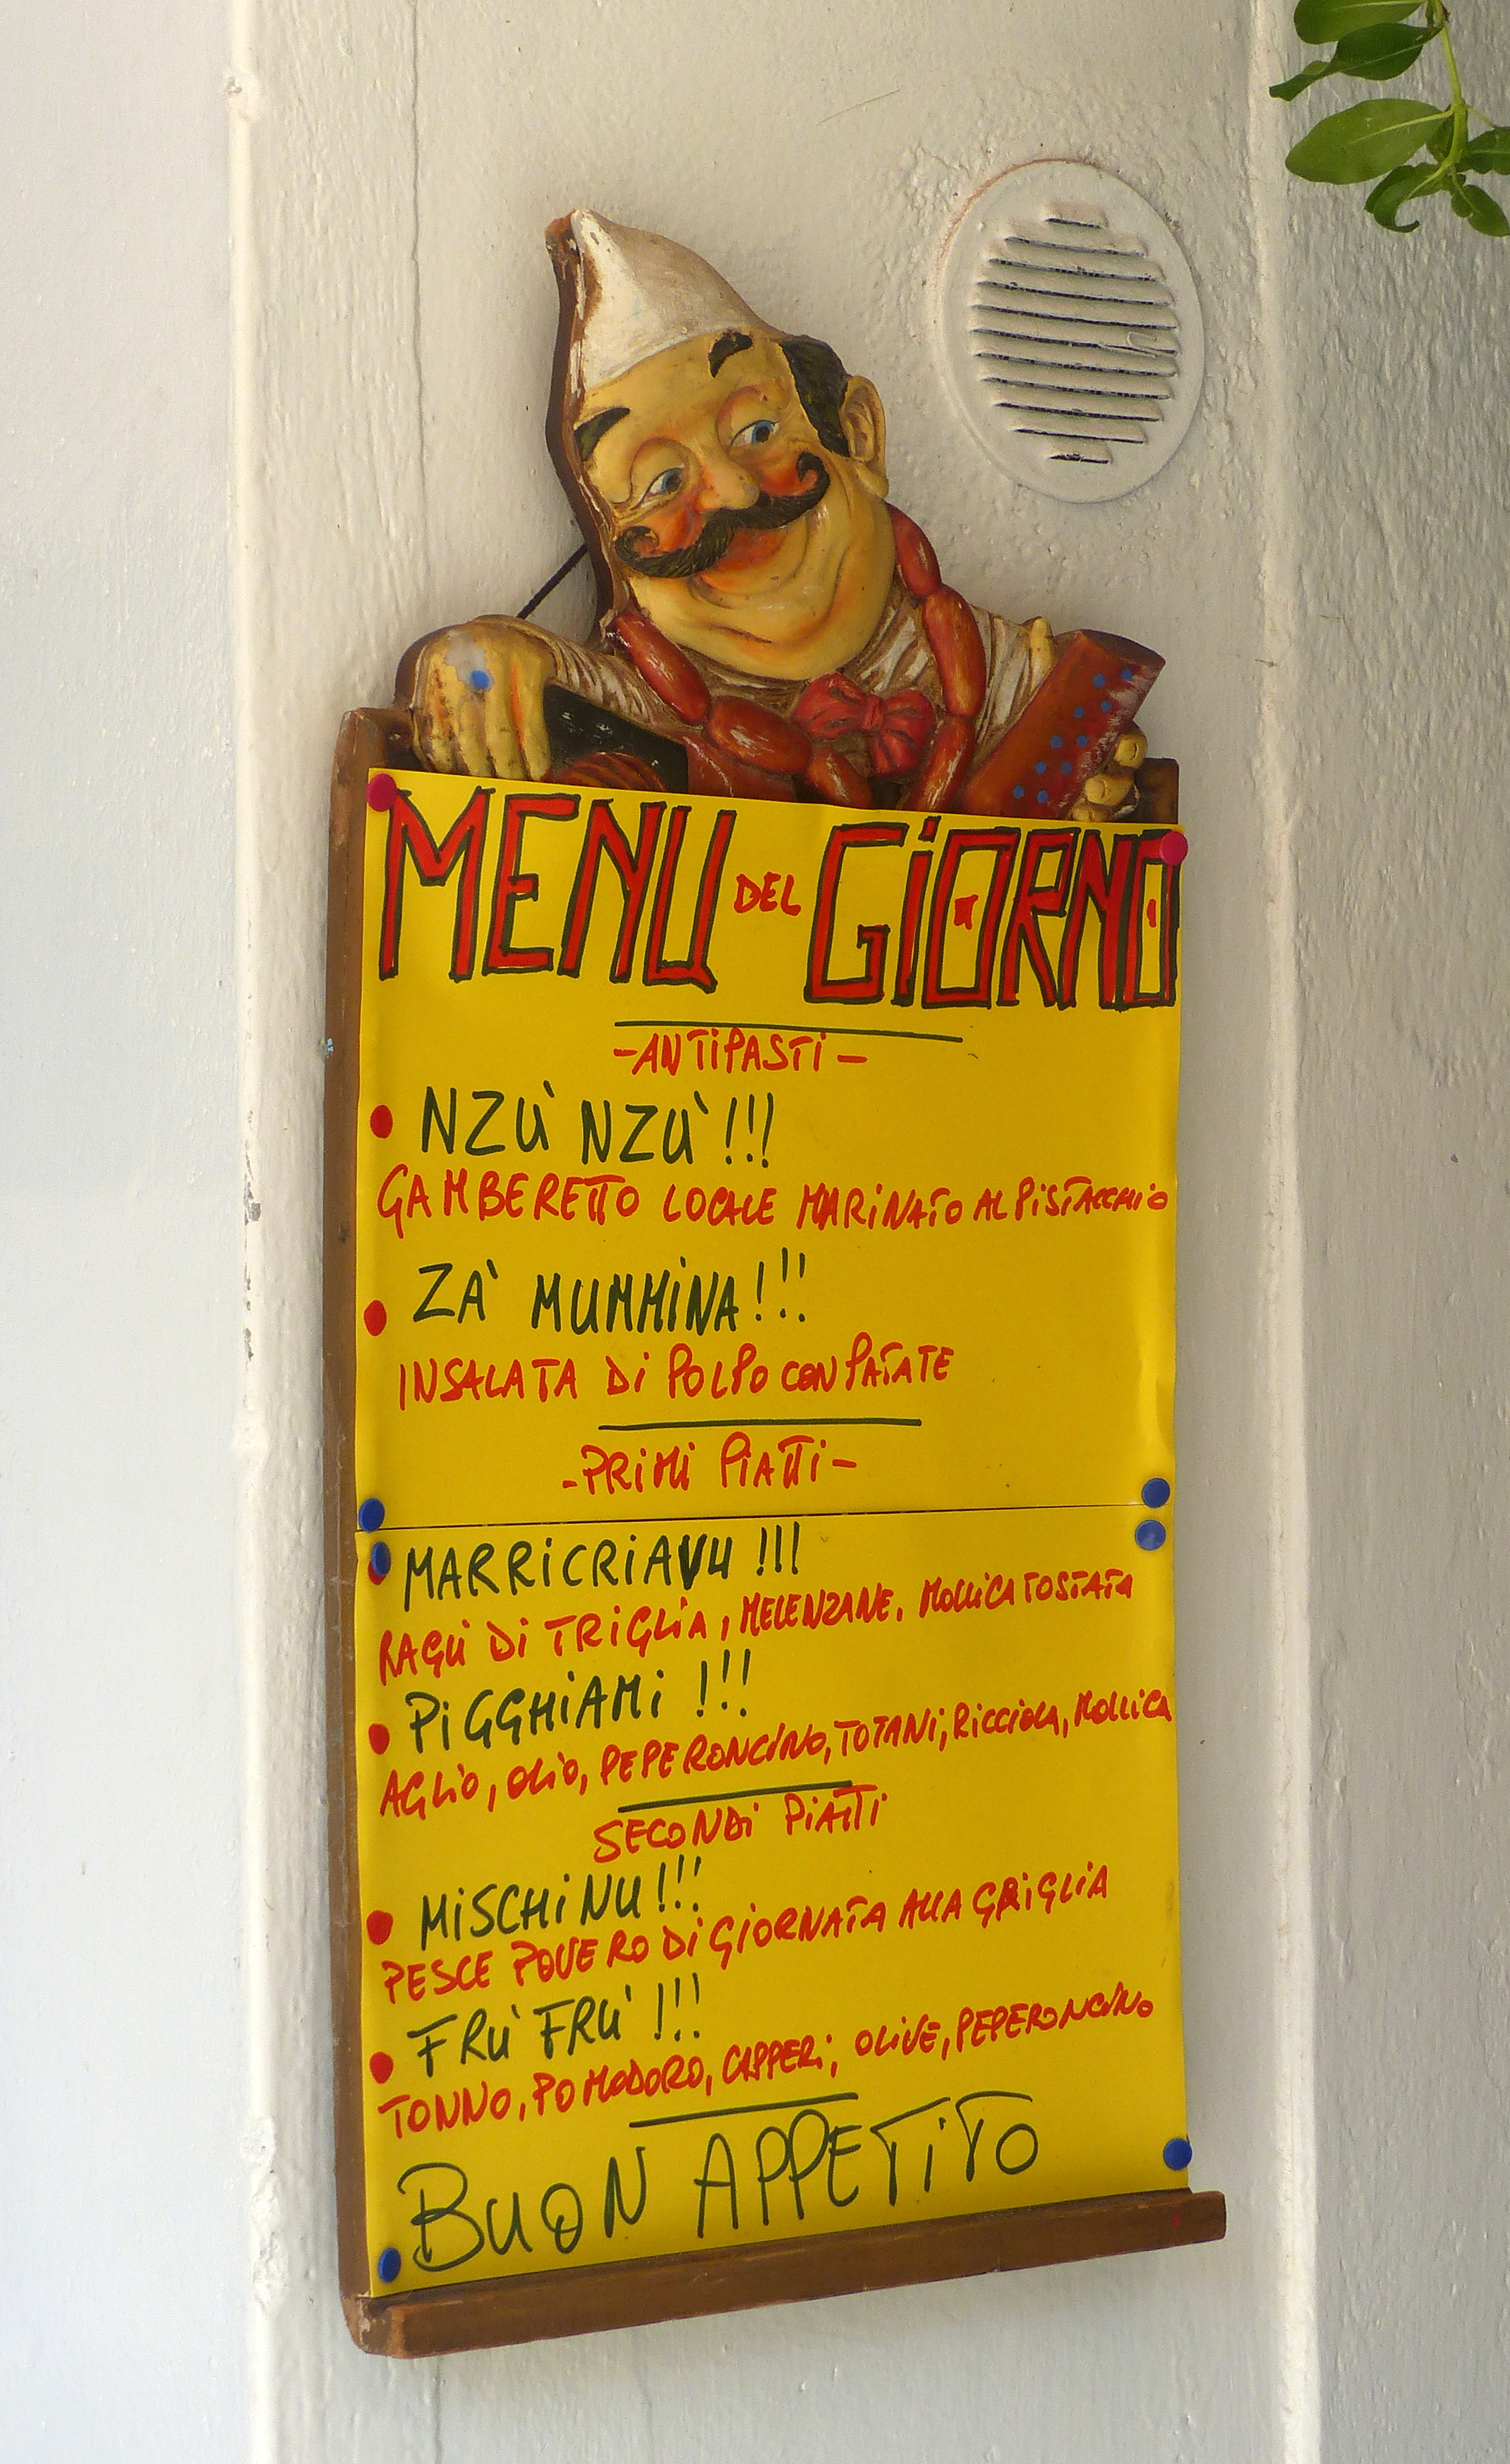 MENU DEL GiORNO
-ANTiPASTi-
NZÙ NZÙ!!!
GAMBERETTO LOCALE MARiNATO AL PiSTACCHiO
ZA' MUMMiNA!!!
INSALATA Di POLPO CON PATATE
-PRiMi PiATTi-
MARRiCRiAVU!!!
RAGÙ Di TRiGLiA, MELENZANE, MOLLiCA TOSTATA
PiGGHiAMi!!!
AGLiO, OLiO, PEPERONCiNO, TOTANi, RiCCiOLA, MOLLiCA
SECONDi PiATTi
MiSCHiNU!!!
PESCE POVERO Di GiORNATA ALLA GRiGLiA
FRÙ FRÙ!!!
TONNO, POMODORO, CAPPERi, OLiVE, PEPERONCiNO
BUON APPETiTO